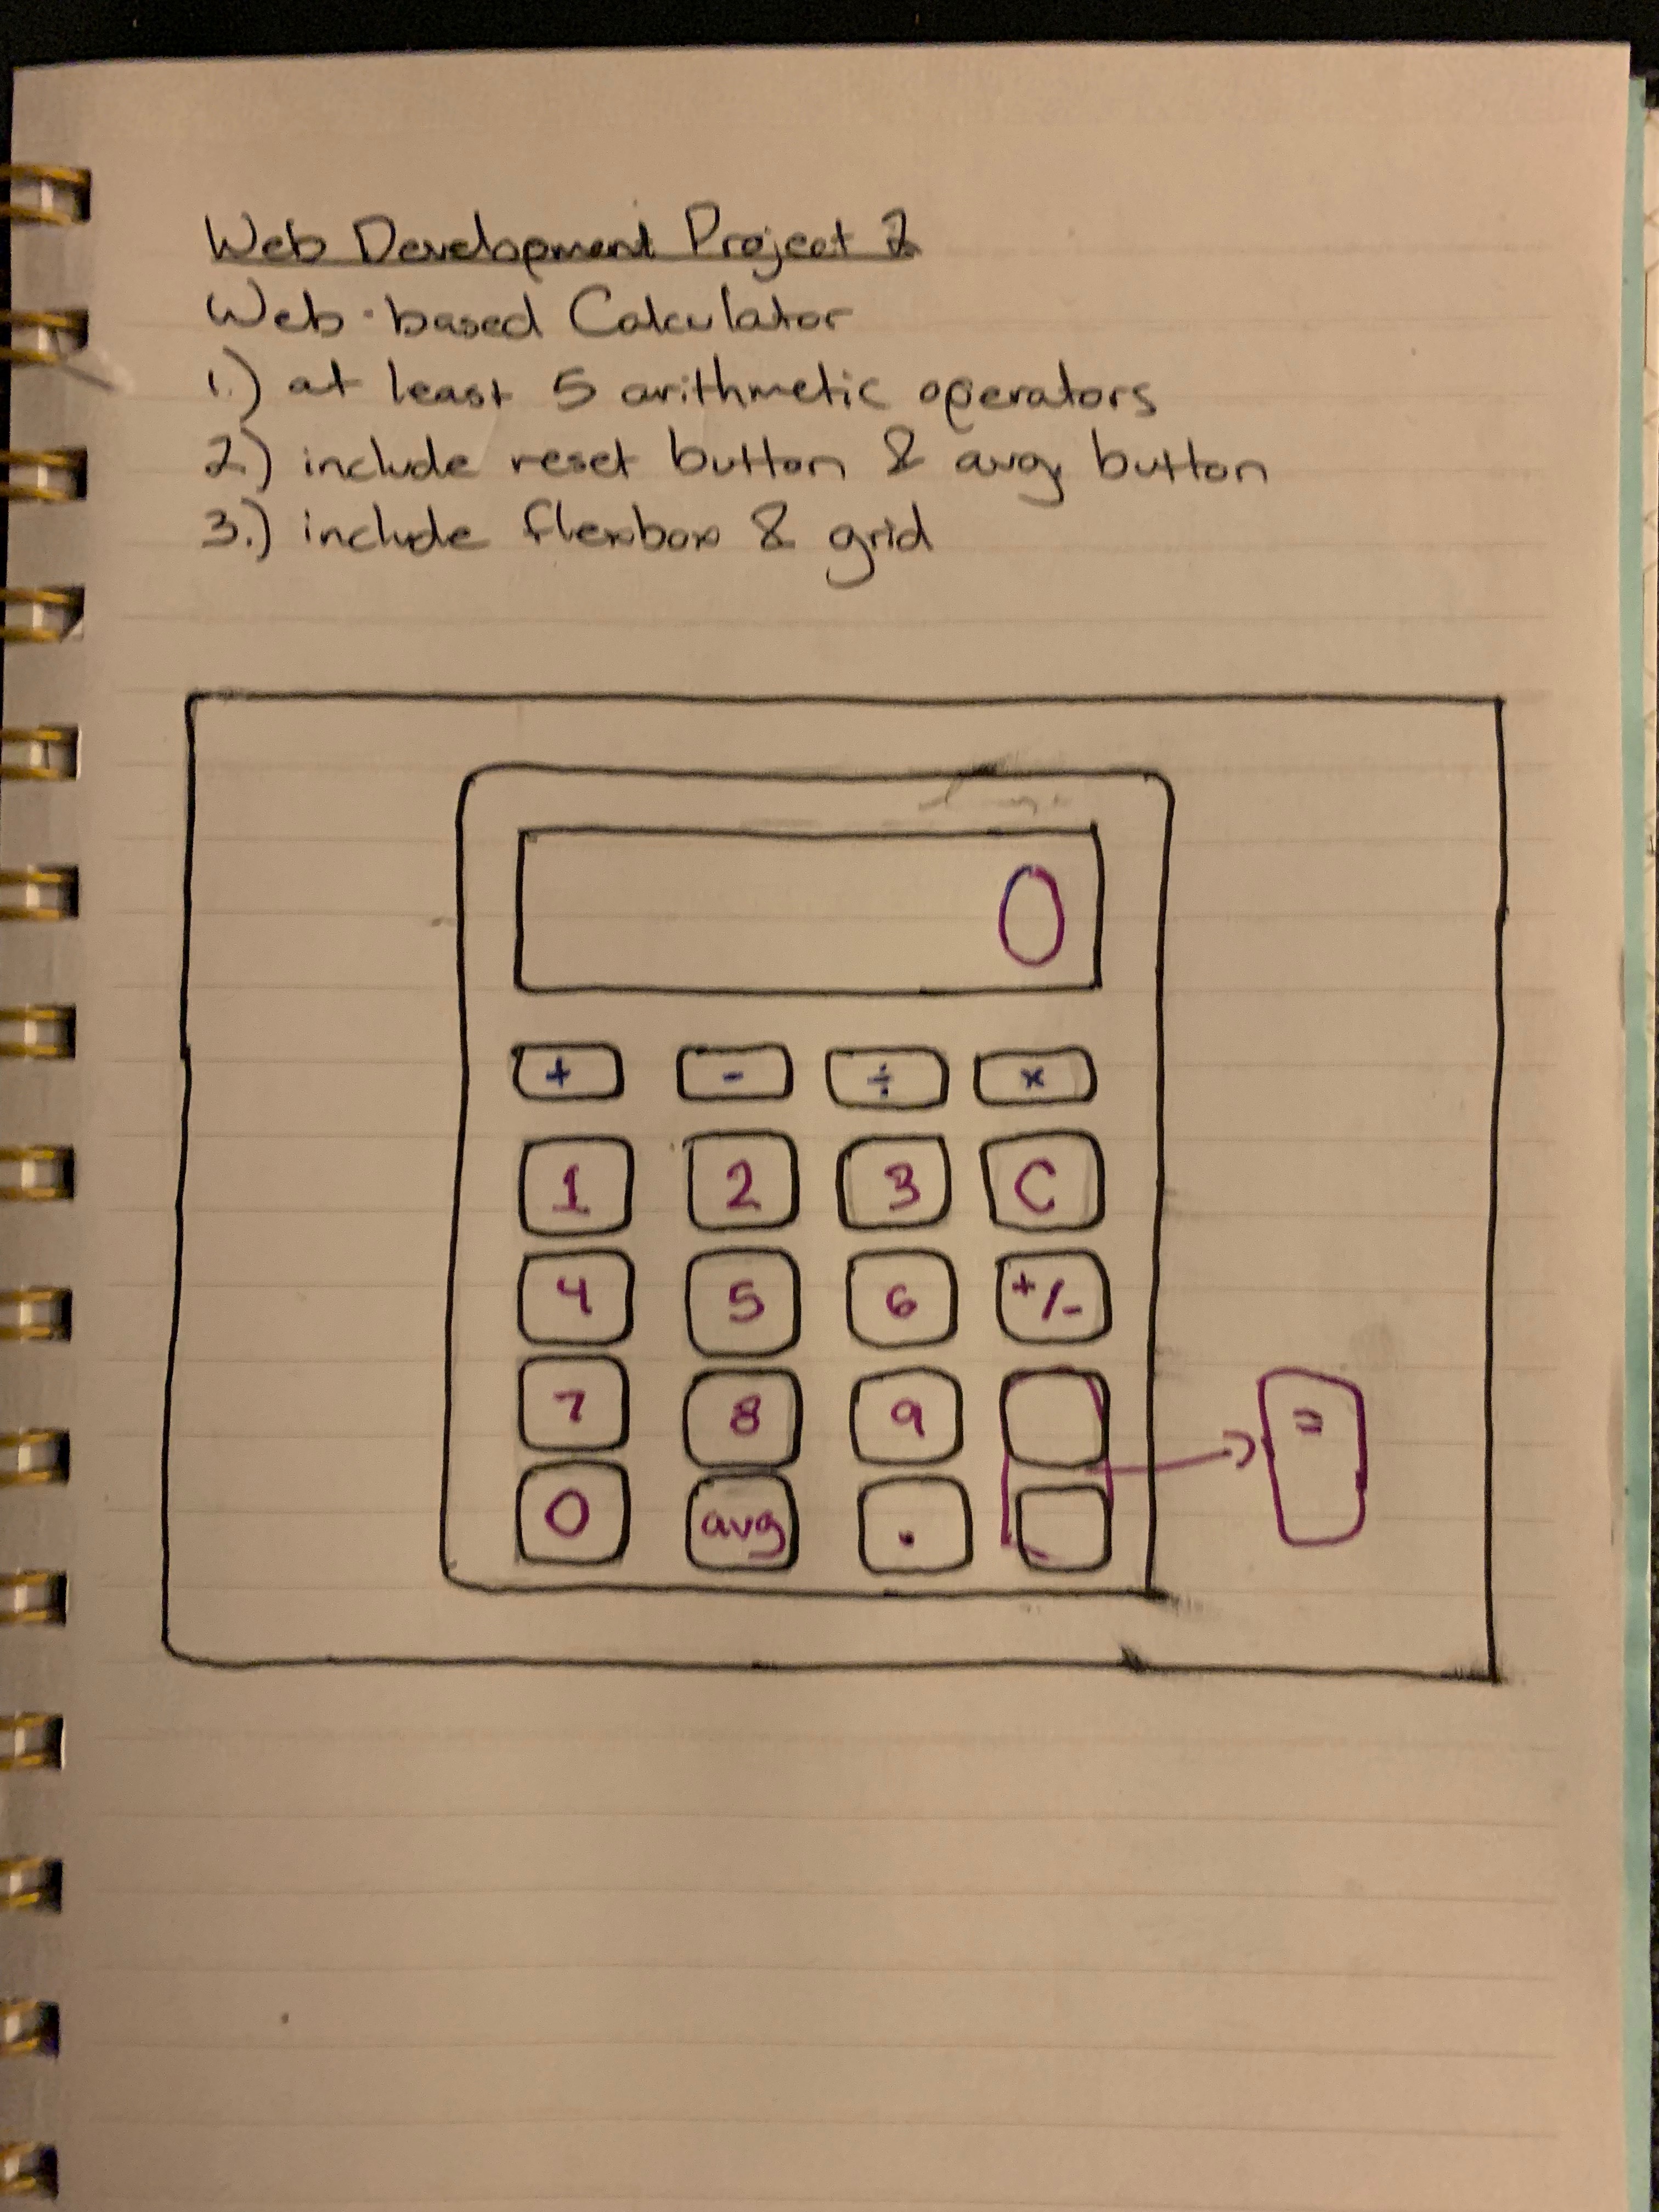 Web Development Project 2
Web-based Calculator
1.) at least 5 arithmetic operators
2.) include reset button & avg. button
3.) include flexbox & grid
0
+ - ÷ ×
1 2 3 C
4 5 6 +/-
7 8 9 =
0 avg .